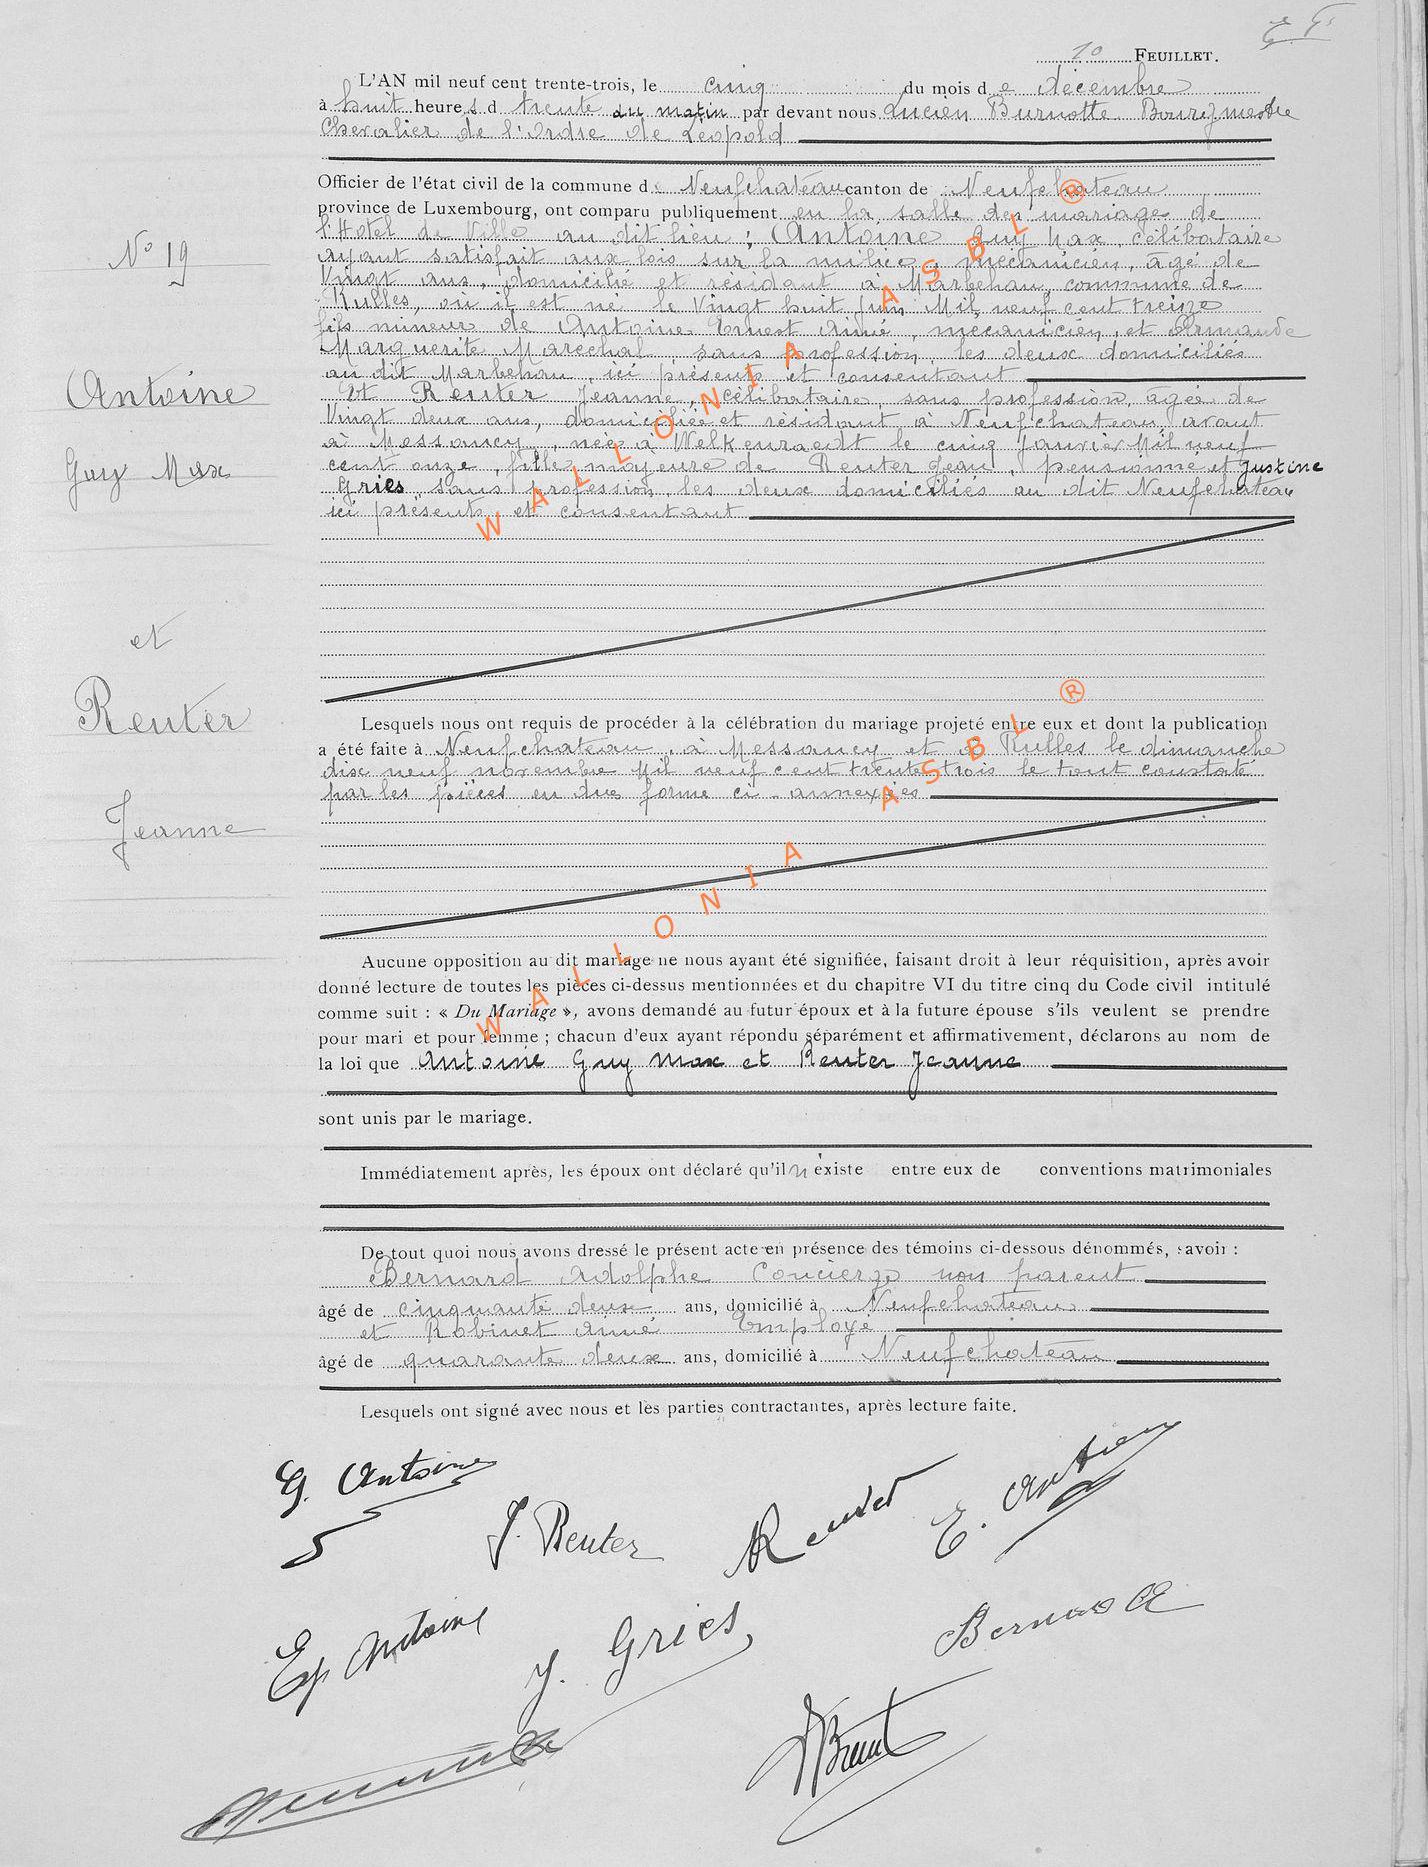 E. G.
10 FEUILLET.
L'AN mil neuf cent trente-trois, le cinq du mois de décembre
à huit heures d trente du matin par devant nous Lucien Burnotte Bourgmestre
Chevalier de l'Ordre de Léopold
Officier de l'état civil de la commune de Neufchateau canton de Neufchateau
province de Luxembourg, ont comparu publiquement en la salle des mariage de
l'Hotel de Ville au dit lieu : Antoine Guy Max, célibataire
ayant satisfait aux lois sur la milice, mécanicien, âgé de
Vingt ans, domicilié et résidant à Marbehan, commune de
Rulles, où il est né le Vingt huit juin Mil neuf cent treize
fils mineur de Antoine Ernest Aimé, mécanicien, et Armande
Marguerite Maréchal, sans profession, les deux domiciliés
au dit Marbehan, ici présents et consentant
Et Reuter Jeanne, célibataire, sans profession, âgée de
Vingt deux ans, domiciliée et résidant à Neufchateau, avant
à Messancy, née à Welkenraedt le cinq Janvier Mil neuf
cent onze, fille majeure de Reuter Jean, pensionné et Justine
Gries, sans profession, les deux domiciliés au dit Neufchateau
ici présents et consentant
Lesquels nous ont requis de procéder à la célébration du mariage projeté entre eux et dont la publication
a été faite à Neufchateau, à Messancy et à Rulles le dimanche
dix neuf novembre Mil neuf cent trente trois le tout constaté
par les pièces en due forme ci-annexées
Aucune opposition au dit mariage ne nous ayant été signifiée, faisant droit à leur réquisition, après avoir
donné lecture de toutes les pièces ci-dessus mentionnées et du chapitre VI du titre cinq du Code civil intitulé
comme suit : « Du Mariage », avons demandé au futur époux et à la future épouse s'ils veulent se prendre
pour mari et pour femme ; chacun d'eux ayant répondu séparément et affirmativement, déclarons au nom de
la loi que Antoine Guy Max et Reuter Jeanne
sont unis par le mariage.
Immédiatement après, les époux ont déclaré qu'il n'existe entre eux de conventions matrimoniales
De tout quoi nous avons dressé le présent acte en présence des témoins ci-dessous dénommés, savoir :
Bernard Adolphe Concierge non parent
âgé de cinquante deux ans, domicilié à Neufchateau
et Robinet Aimé Employé
âgé de quarante deux ans, domicilié à Neufchateau
Lesquels ont signé avec nous et les parties contractantes, après lecture faite.
N° 19
Antoine
Guy Max
et
Reuter
Jeanne
G. Antoine
J. Reuter
Reuter
E. Antoine
Ep Antoine
J. Gries
Bernard
WALLONIA ASBL ®
WALLONIA ASBL ®